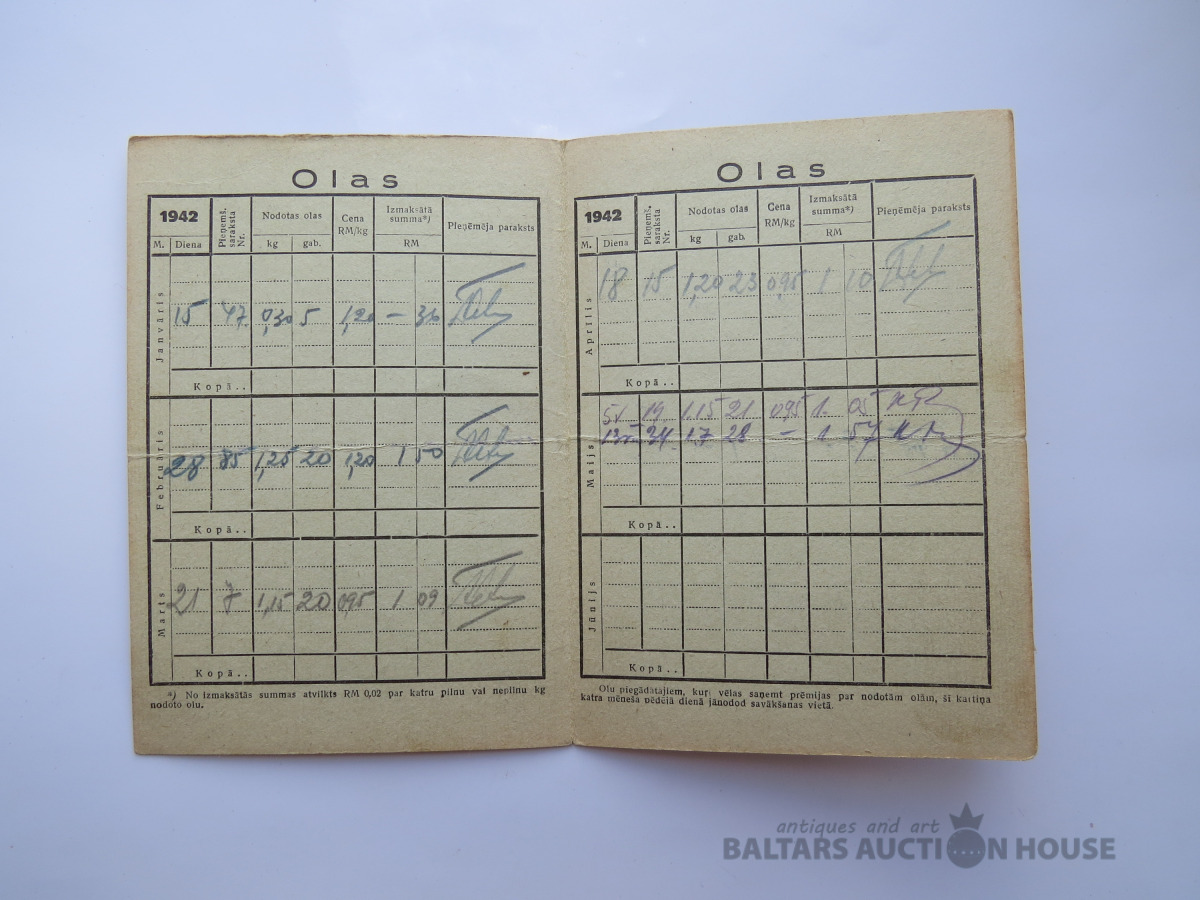 Olas
1942 Pieņemš. saraksta Nr. Nodotas olas Cena RM/kg Izmaksātā summa*) Pieņēmēja paraksts
M. Diena kg gab. RM
Janvāris 15 47 0,30 5 1,20 — 36
Kopā..
Februāris 28 85 1,25 20 1,20 1 50
Kopā..
Marts 21 7 1,15 20 095 1 09
Kopā..
*) No izmaksātās summas atvilkts RM 0,02 par katru pilnu vai nepilnu kg
nodoto olu.
Olas
1942 Pieņemš. saraksta Nr. Nodotas olas Cena RM/kg Izmaksātā summa*) Pieņēmēja paraksts
M. Diena kg gab. RM
Aprīlis 18 15 1,20 23 0,95 1 10
Kopā..
Maijs 5/V 19 1.15 21 0,95 1. 05
34 1.7 28 — 1 57
Kopā..
Jūnijs
Kopā..
Olu piegādātājiem, kuŗi vēlas saņemt prēmijas par nodotām olām, šī kartiņa
katra mēneša pēdējā dienā jānodod savākšanas vietā.
antiques and art
BALTARS AUCTION HOUSE